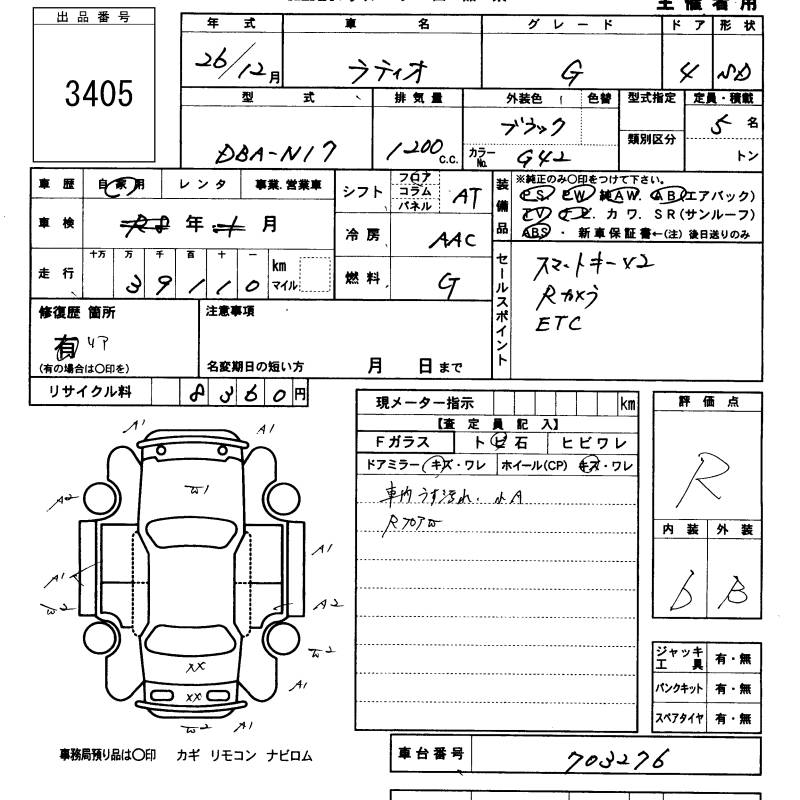 主催者用
出品番号
3405
年式 車名 グレード ドア 形状
26/12月 ラティオ G 4 SD
型式 排気量 外装色 色替 型式指定 定員・積載
DBA-N17 1200 C.C. ブラック 5名
カラーNo. G42 類別区分 トン
車歴 自家用 レンタ 事業.営業車
車検 R8年 1月
走行 十万 万 千 百 十 一 km マイル
39110
シフト フロア コラム パネル AT
冷房 AAC
燃料 G
装備品 ※純正のみ○印をつけて下さい。
PS. PW. 純AW. AB(エアバック)
TV. ナビ. カワ. SR(サンルーフ)
ABS ・ 新車保証書←(注) 後日送りのみ
セールスポイント
スマートキーx2
Rカメラ
ETC
修復歴 箇所
有 リア
(有の場合は○印を)
注意事項
名変期日の短い方 月 日まで
リサイクル料 8360円
現メーター指示 km
【査定員記入】
Fガラス トビ石 ヒビワレ
ドアミラー キズ・ワレ ホイール(CP) キズ・ワレ
車内うす汚れ. 小A
RフロアW
評価点
R
内装 外装
b B
A1 A1
W1
A2
A1 A1
W2 A2
W2
XX
A1
XX
W2 A1
ジャッキ工具 有・無
パンクキット 有・無
スペアタイヤ 有・無
事務局預り品は○印 カギ リモコン ナビロム
車台番号 703276